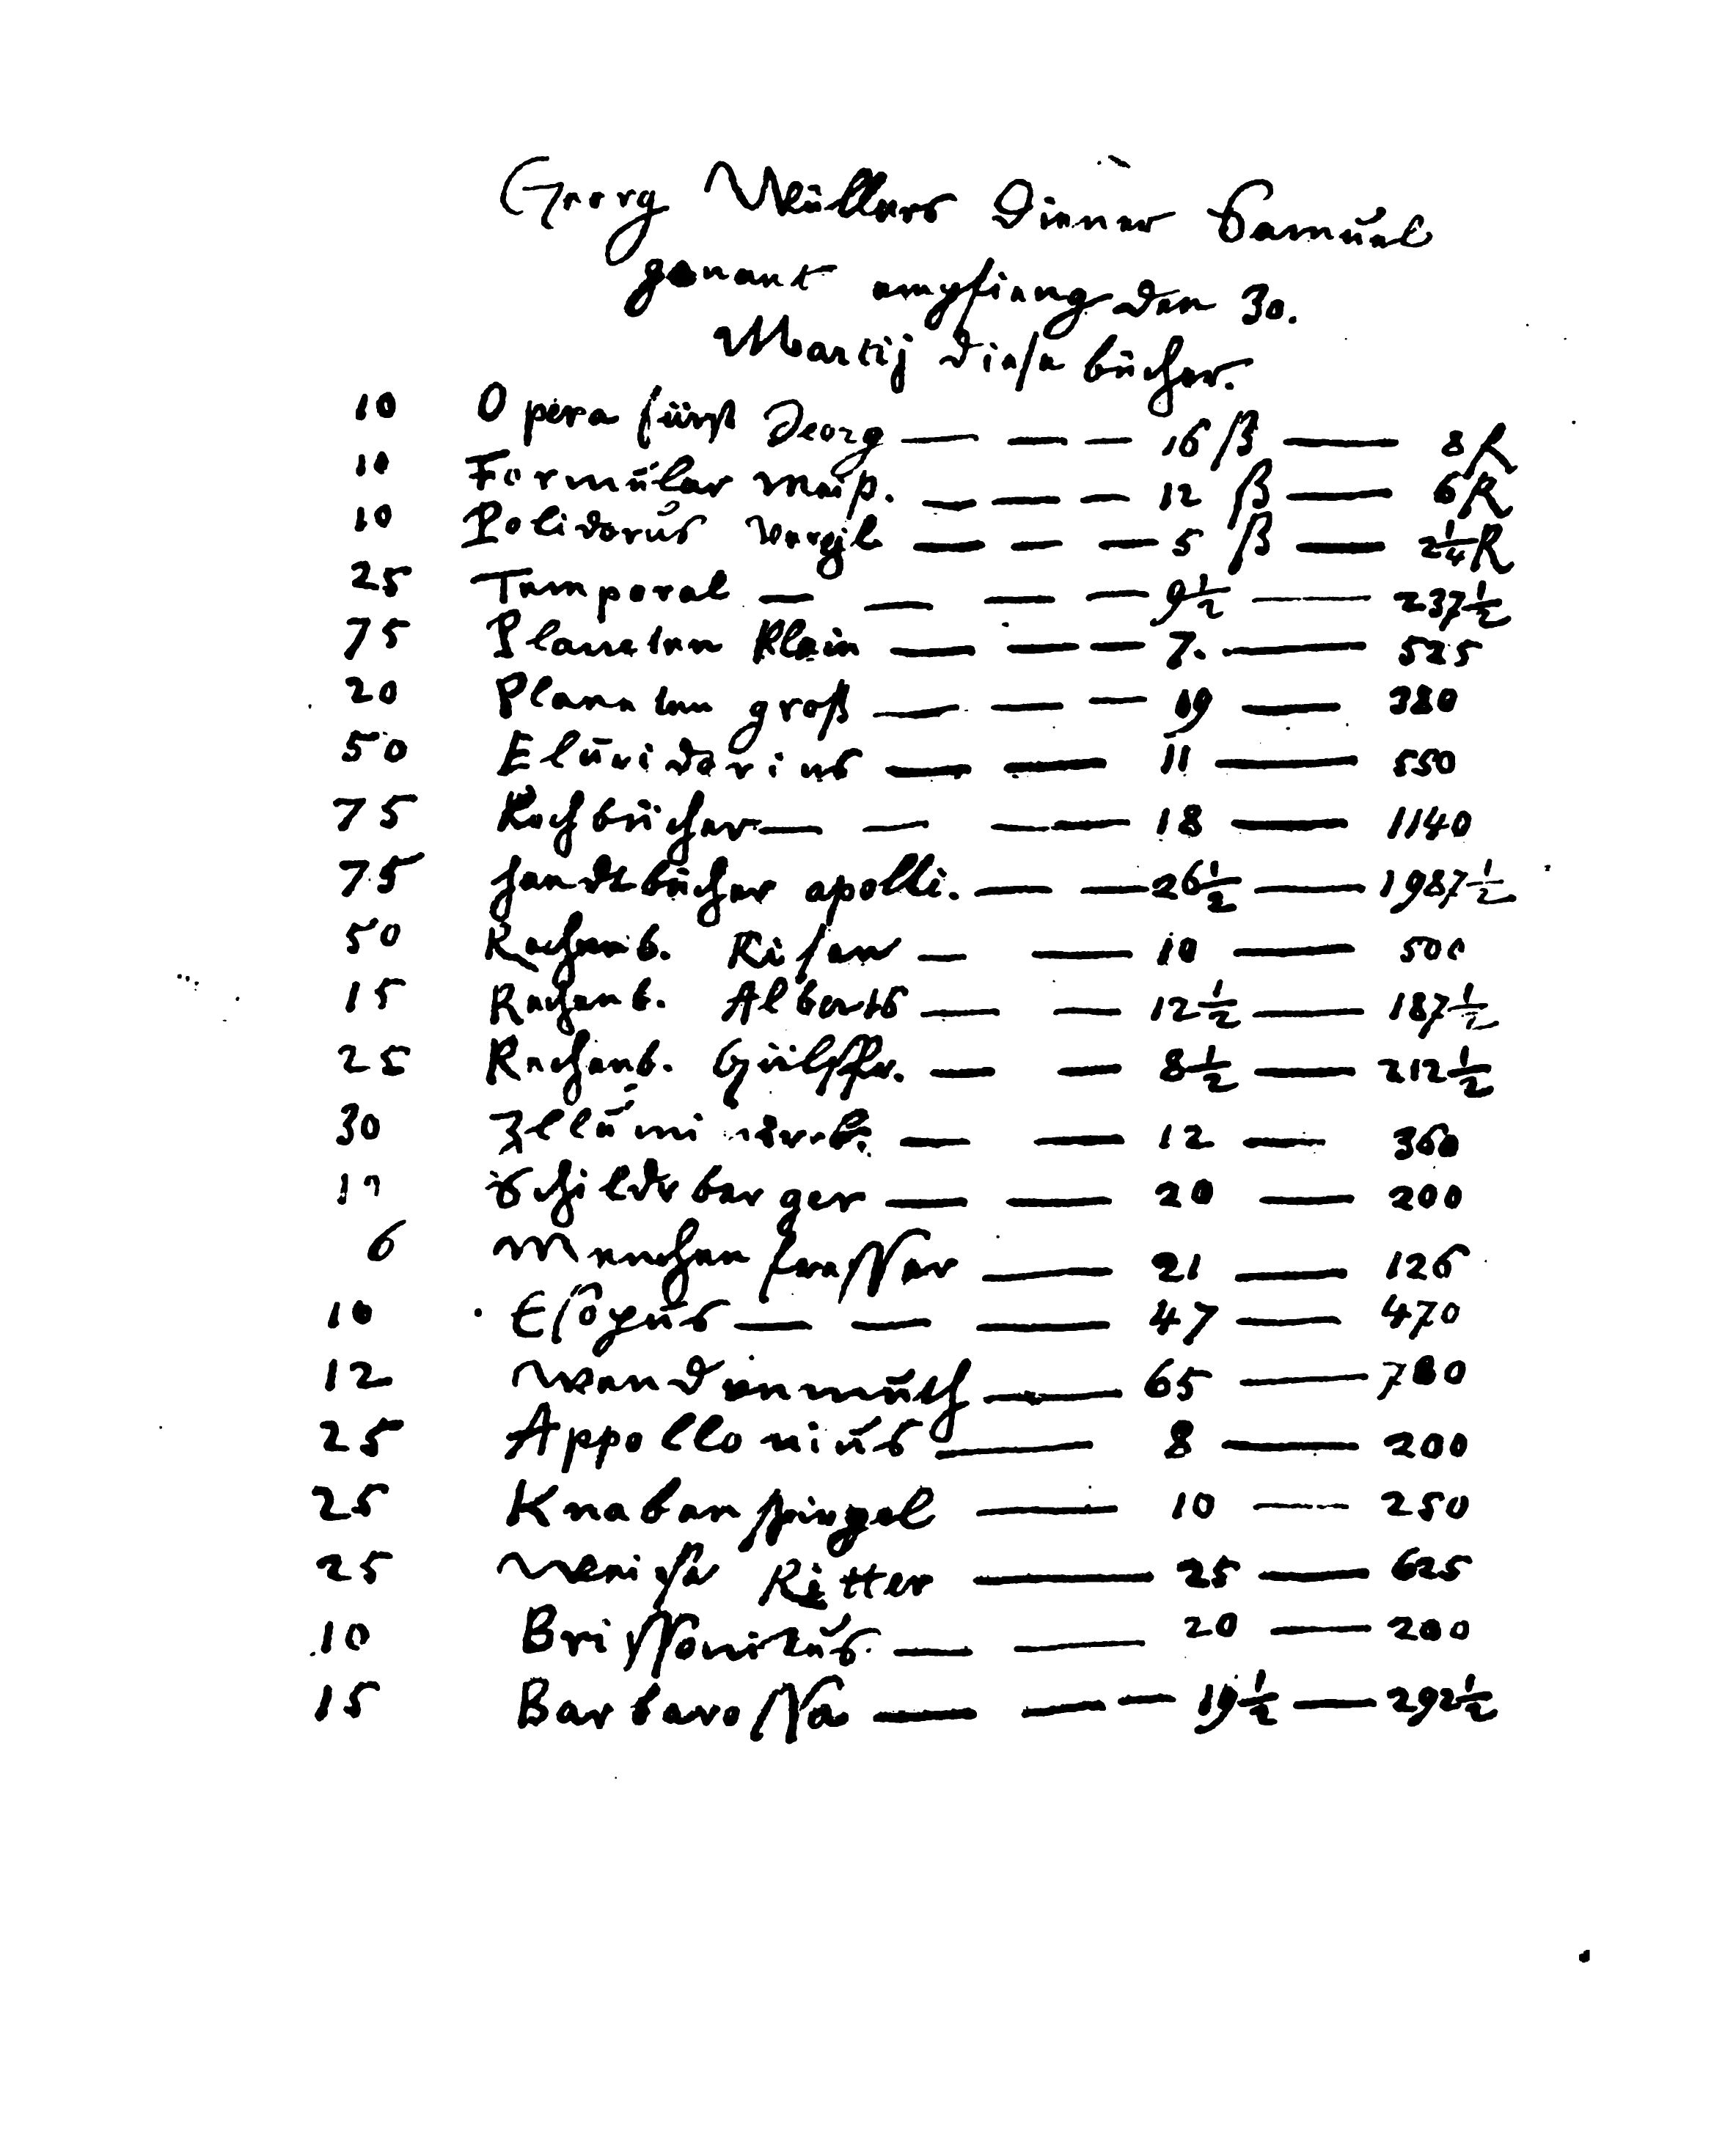 Georg Müllers Diener Samuel
genant empfieng den 30.
Martij diese bücher.
10 Opera fürst Georg — — — 16 ß — 8 R
10 Formular — — — 12 ß — 6 R
10 Polidorus Vergil — — — 5 ß — 2¼ R
25 Temporal — — — — 9½ — 237½
75 Planeten klein — — — 7. — 525
20 Planeten groß — — — 19 — 380
50 Elucidarius — — 11 — 550
75 Kochbücher — — — 18 — 1140
75 handtbücher apolli. — — 26½ — 1987½
50 Rechenb. Risen — — 10 — 500
15 Rechenb. Alberts — — 12½ — 187½
25 Rechenb. — — 8½ — 212½
30 — — 12 — 360
Schildtberger — — 20 — 200
6 — 21 — 126
10 Esopus — — — 47 — 470
12 Wendenmuth — 65 — 780
25 Appollonius — 8 — 200
25 Knabenspiegel — 10 — 250
25 Weise Ritter — 25 — 625
10 Brissonitus — — 20 — 200
15 Barbarossa — — — 19½ — 292½